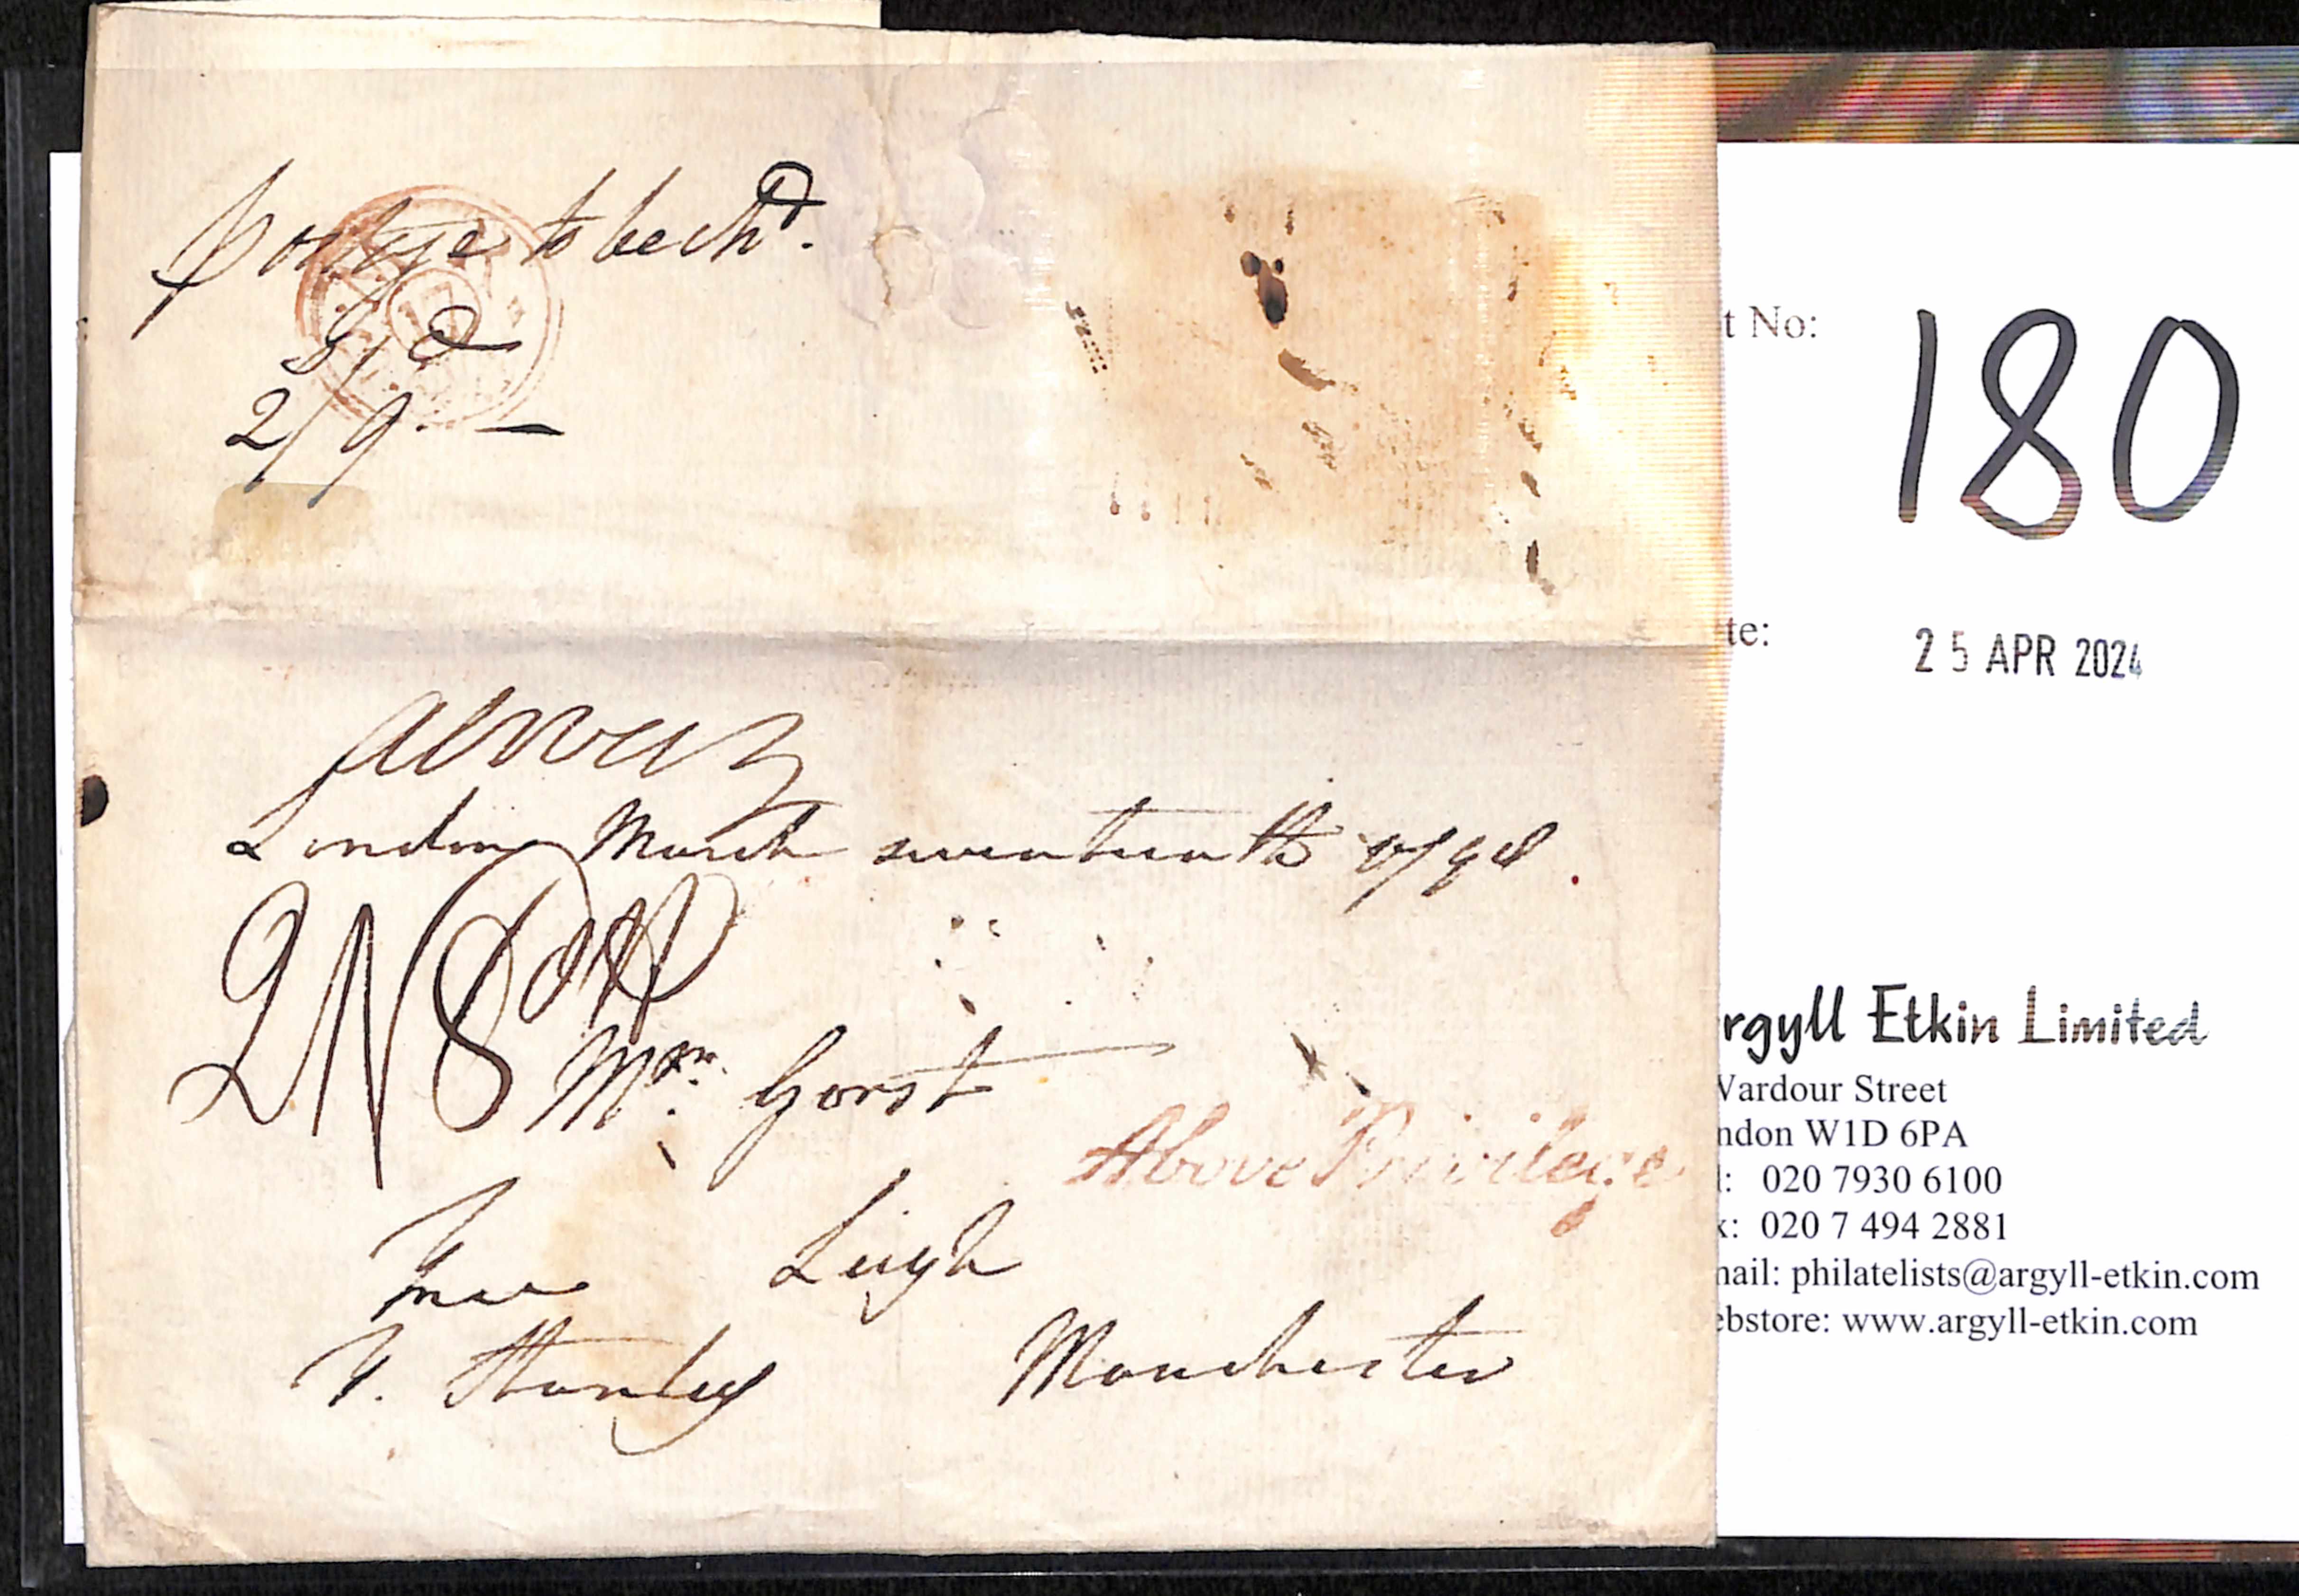 postage to be chd.
8/d
2/9
London March seventeenth 1798
2N8
Mrs. Gorst
Above Privilege
Leigh
Free
T. Stanley
Manchester
t No:
180
te:
25 APR 2024
rgyll Etkin Limited
Vardour Street
ndon W1D 6PA
l: 020 7930 6100
x: 020 7 494 2881
nail: philatelists@argyll-etkin.com
ebstore: www.argyll-etkin.com